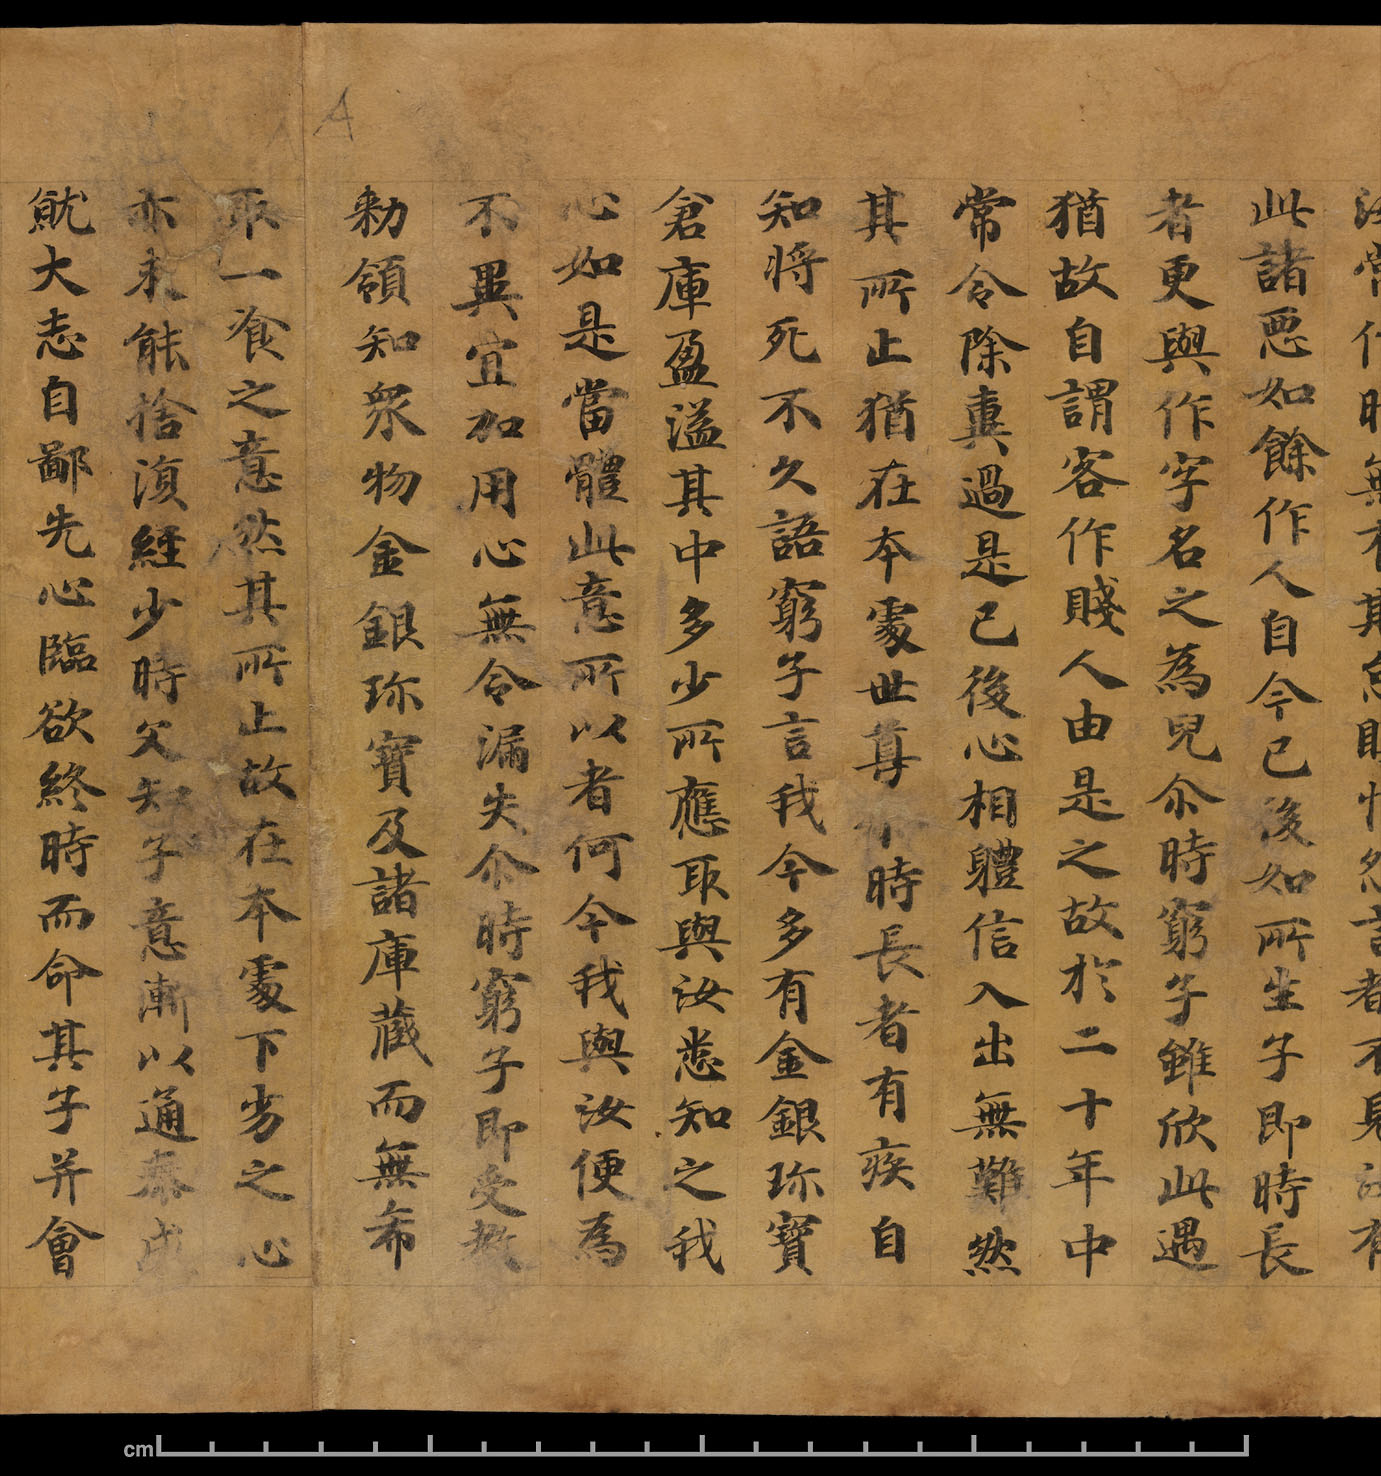 此諸惡如餘作人自今已後如所生子即時長
者更與作字名之為兒尒時窮子雖欣此遇
猶故自謂客作賤人由是之故於二十年中
常令除糞過是已後心相體信入出無難然
其所止猶在本處世尊尒時長者有疾自
知將死不久語窮子言我今多有金銀珎寶
倉庫盈溢其中多少所應取與汝悉知之我
心如是當體此意所以者何今我與汝便為
不異宜加用心無令漏失尒時窮子即受教
勑領知眾物金銀珎寶及諸庫藏而無希
取一飡之意然其所止故在本處下劣之心
亦未能捨湏經少時父知子意漸以通泰成
就大志自鄙先心臨欲終時而命其子并會